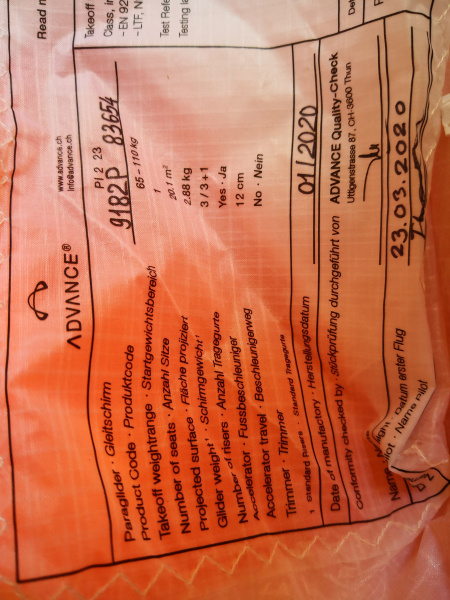 Read
ADVANCE®
www.advance.ch
info@advance.ch
Paraglider · Gleitschirm PI 2 23
Product Code · Produktcode 9182P 83654
Takeoff weightrange · Startgewichtsbereich 65 - 110 kg
Number of seats · Anzahl Sitze 1
Projected surface · Fläche projiziert 20.1 m²
Glider weight¹ · Schirmgewicht¹ 2.88 kg
Number of risers · Anzahl Tragegurte 3 / 3+1
Accelerator · Fussbeschleuniger Yes · Ja
Accelerator travel · Beschleunigerweg 12 cm
Trimmer · Trimmer No · Nein
¹ Standard Risers · Standard Tragegurte
Date of manufactory · Herstellungsdatum 01/2020
Conformity checked by · Stückprüfung durchgeführt von ADVANCE Quality-Check
Uttigenstrasse 87, CH-3600 Thun
Datum erster Flug 23.03.2020
Name Pilot
Takeoff
Class,
- EN 92
- LTF, N
Test Refe
Testing la